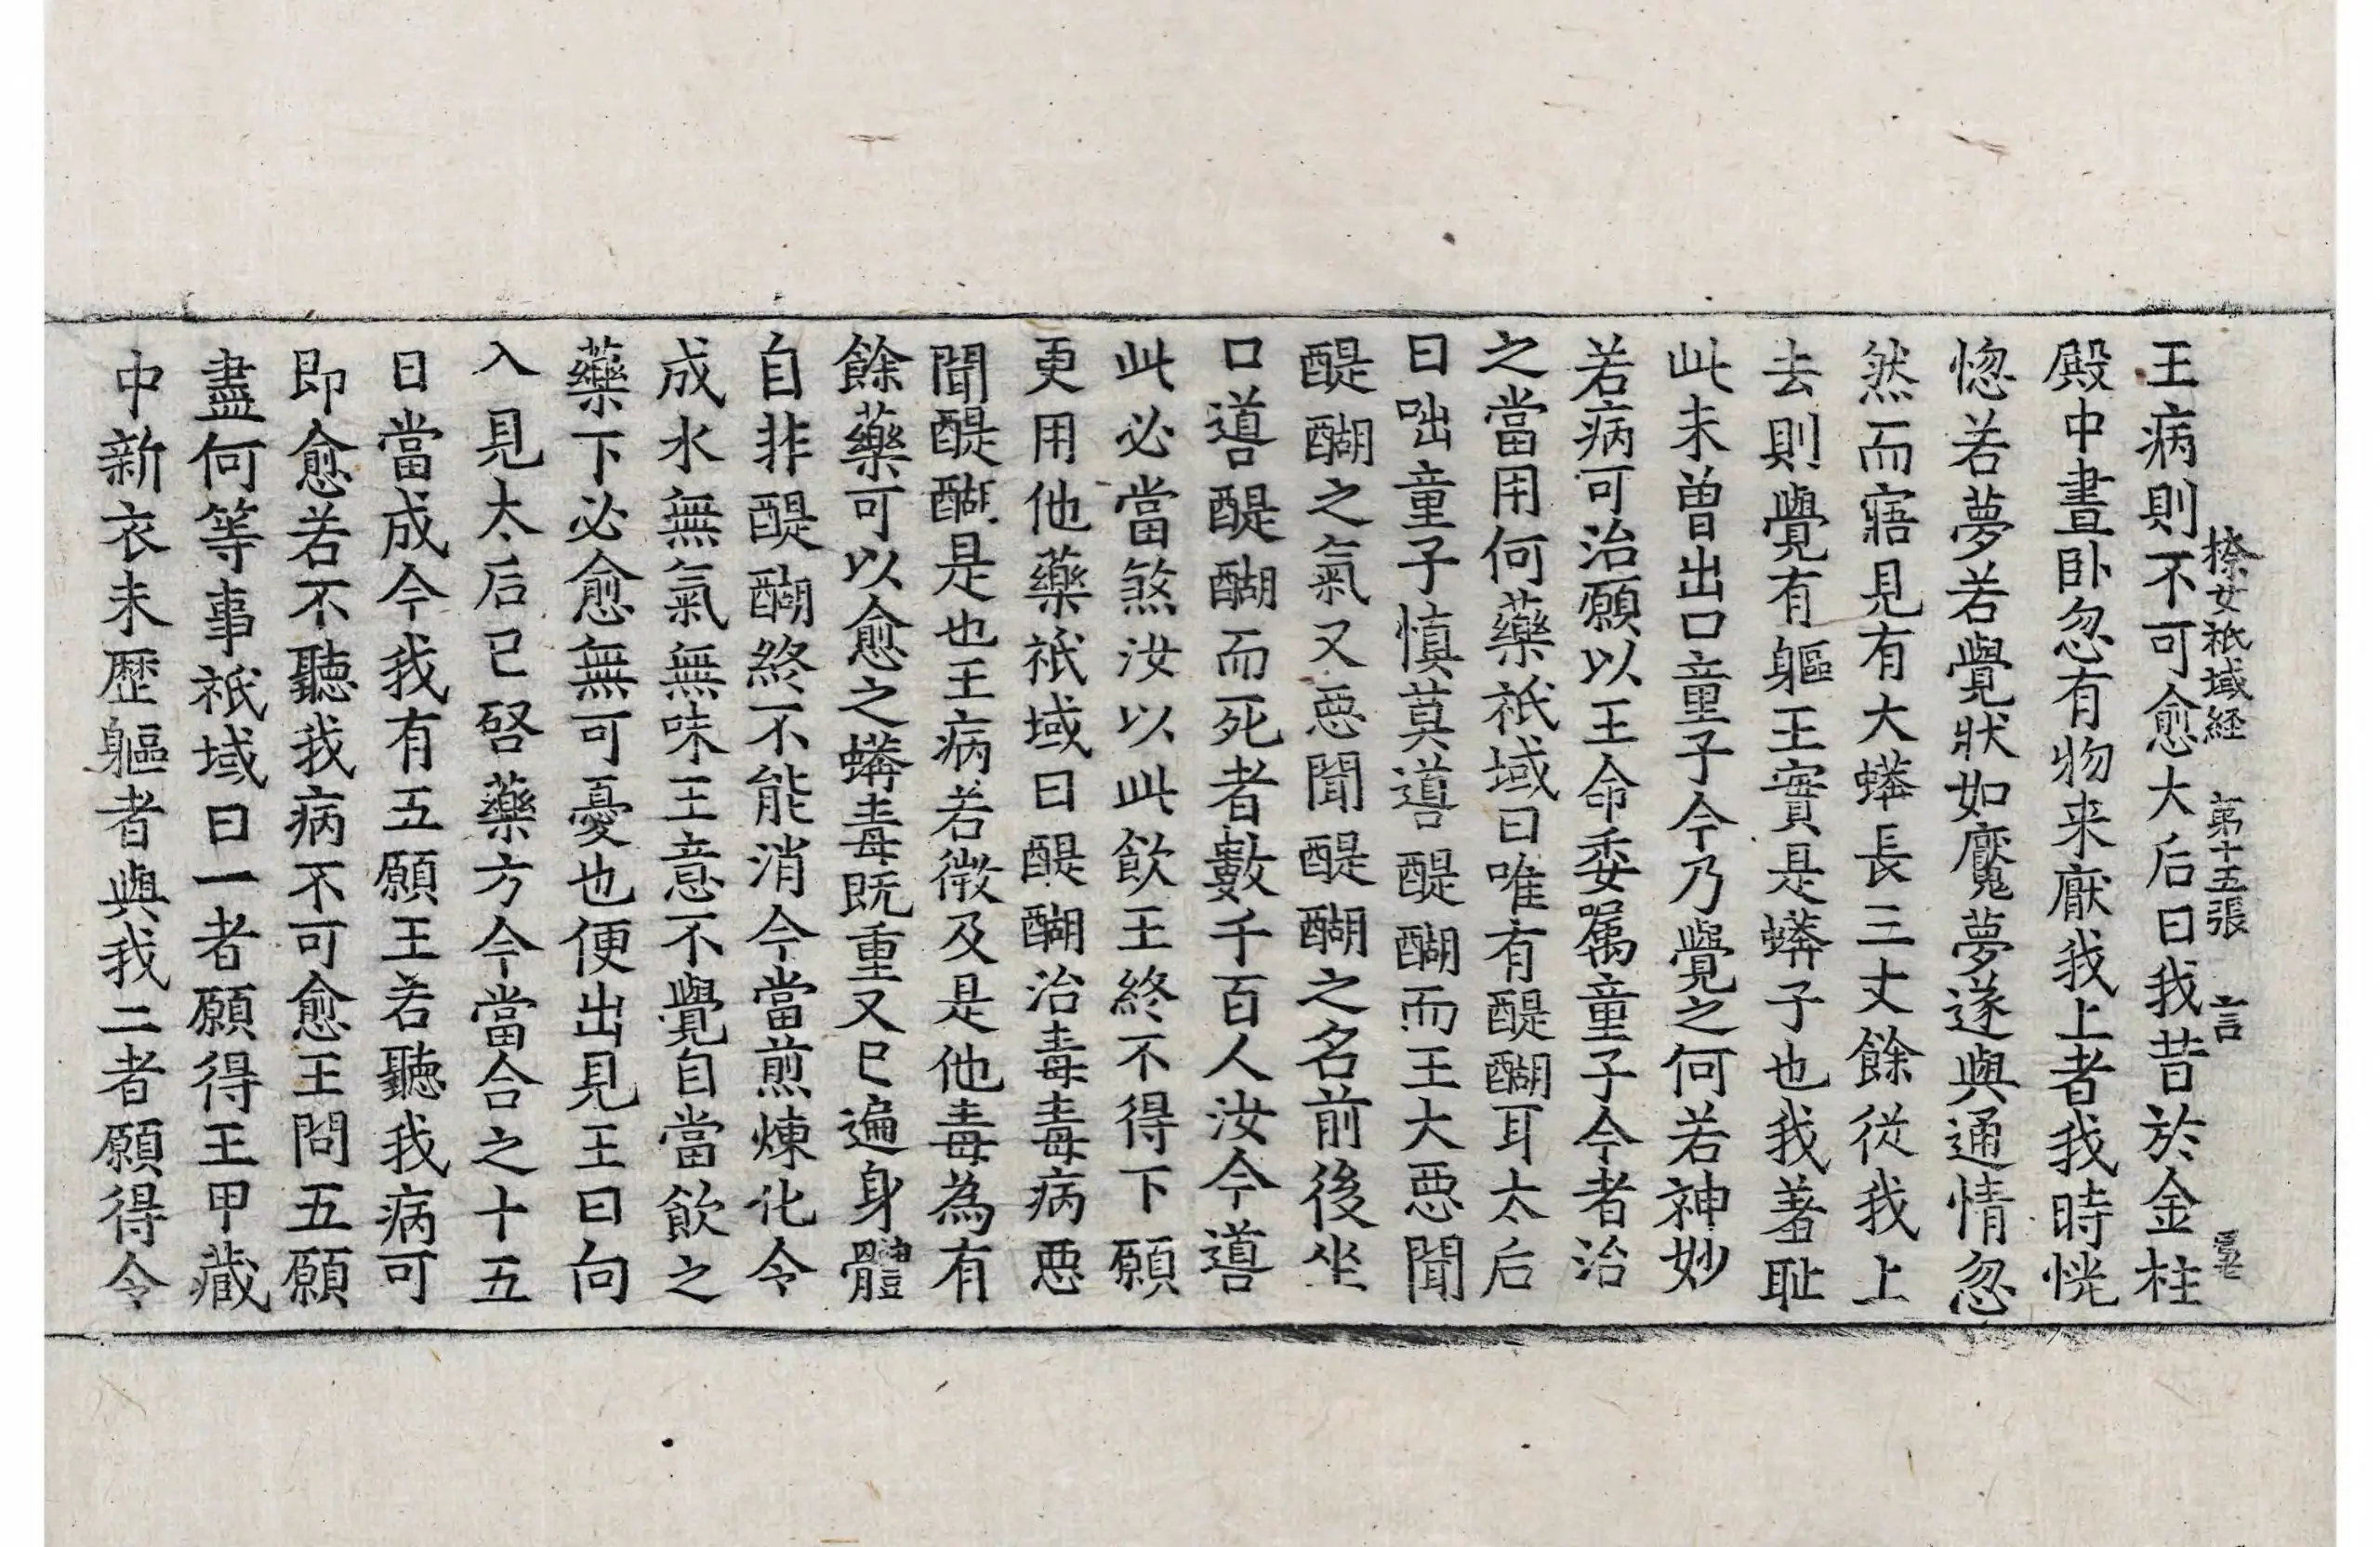 㮈女祇域経　第十五張　言
王病則不可愈大后曰我昔於金柱
殿中晝卧忽有物来厭我上者我時恍
惚若夢若覺狀如魘夢遂與通情忽
然而寤見有大蟒長三丈餘從我上
去則覺有軀王實是蟒子也我羞恥
此未曽出口童子今乃覺之何若神妙
若病可治願以王命委属童子今者治
之當用何藥祇域曰唯有醍醐耳太后
曰咄童子慎莫導醍醐而王大惡聞
醍醐之氣又惡聞醍醐之名前後坐
口導醍醐而死者數千百人汝今導
此必當煞汝以此飲王終不得下願
更用他藥祇域曰醍醐治毒毒病惡
聞醍醐是也王病若微及是他毒為有
餘藥可以愈之蟒毒既重又已遍身體
自非醍醐終不能消今當煎煉化令
成水無氣無味王意不覺自當飲之
藥下必愈無可憂也便出見王曰向
入見太后已啓藥方今當合之十五
日當成今我有五願王若聽我病可
即愈若不聽我病不可愈王問五願
盡何等事祇域曰一者願得王甲藏
中新衣未歷軀者與我二者願得令